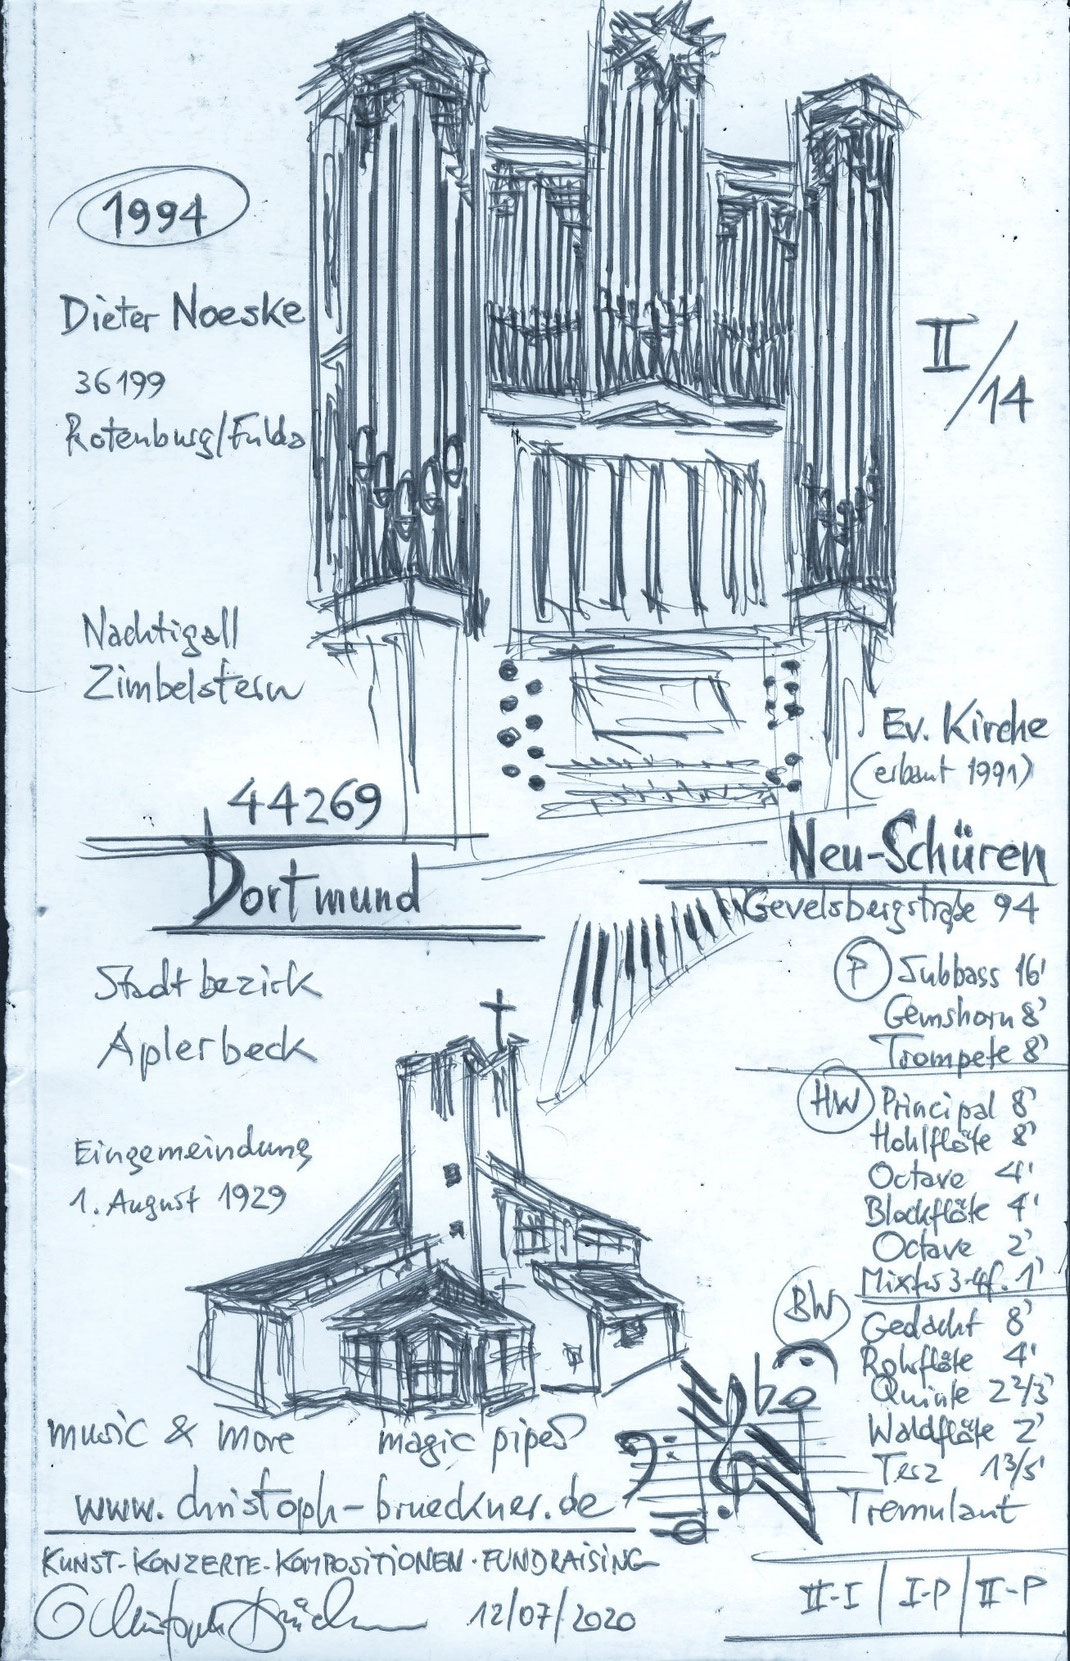 1994
Dieter Noeske
36199
Rotenburg/Fulda
II/14
Nachtigall
Zimbelstern
Ev. Kirche
(erbaut 1991)
44269
Dortmund
Neu-Schüren
Gevelsbergstraße 94
Stadtbezirk
Aplerbeck
Eingemeindung
1. August 1929
P Subbass 16'
Gemshorn 8'
Trompete 8'
HW Principal 8'
Hohlflöte 8'
Octave 4'
Blockflöte 4'
Octave 2'
Mixtur 3-4f. 1'
BW Gedackt 8'
Rohrflöte 4'
Quinte 2 2/3'
Waldflöte 2'
Terz 1 3/5'
Tremulant
II-I | I-P | II-P
music & more magic pipes
www.christoph-brueckner.de
KUNST-KONZERTE-KOMPOSITIONEN·FUNDRAISING
Christoph Brückner 12/07/2020